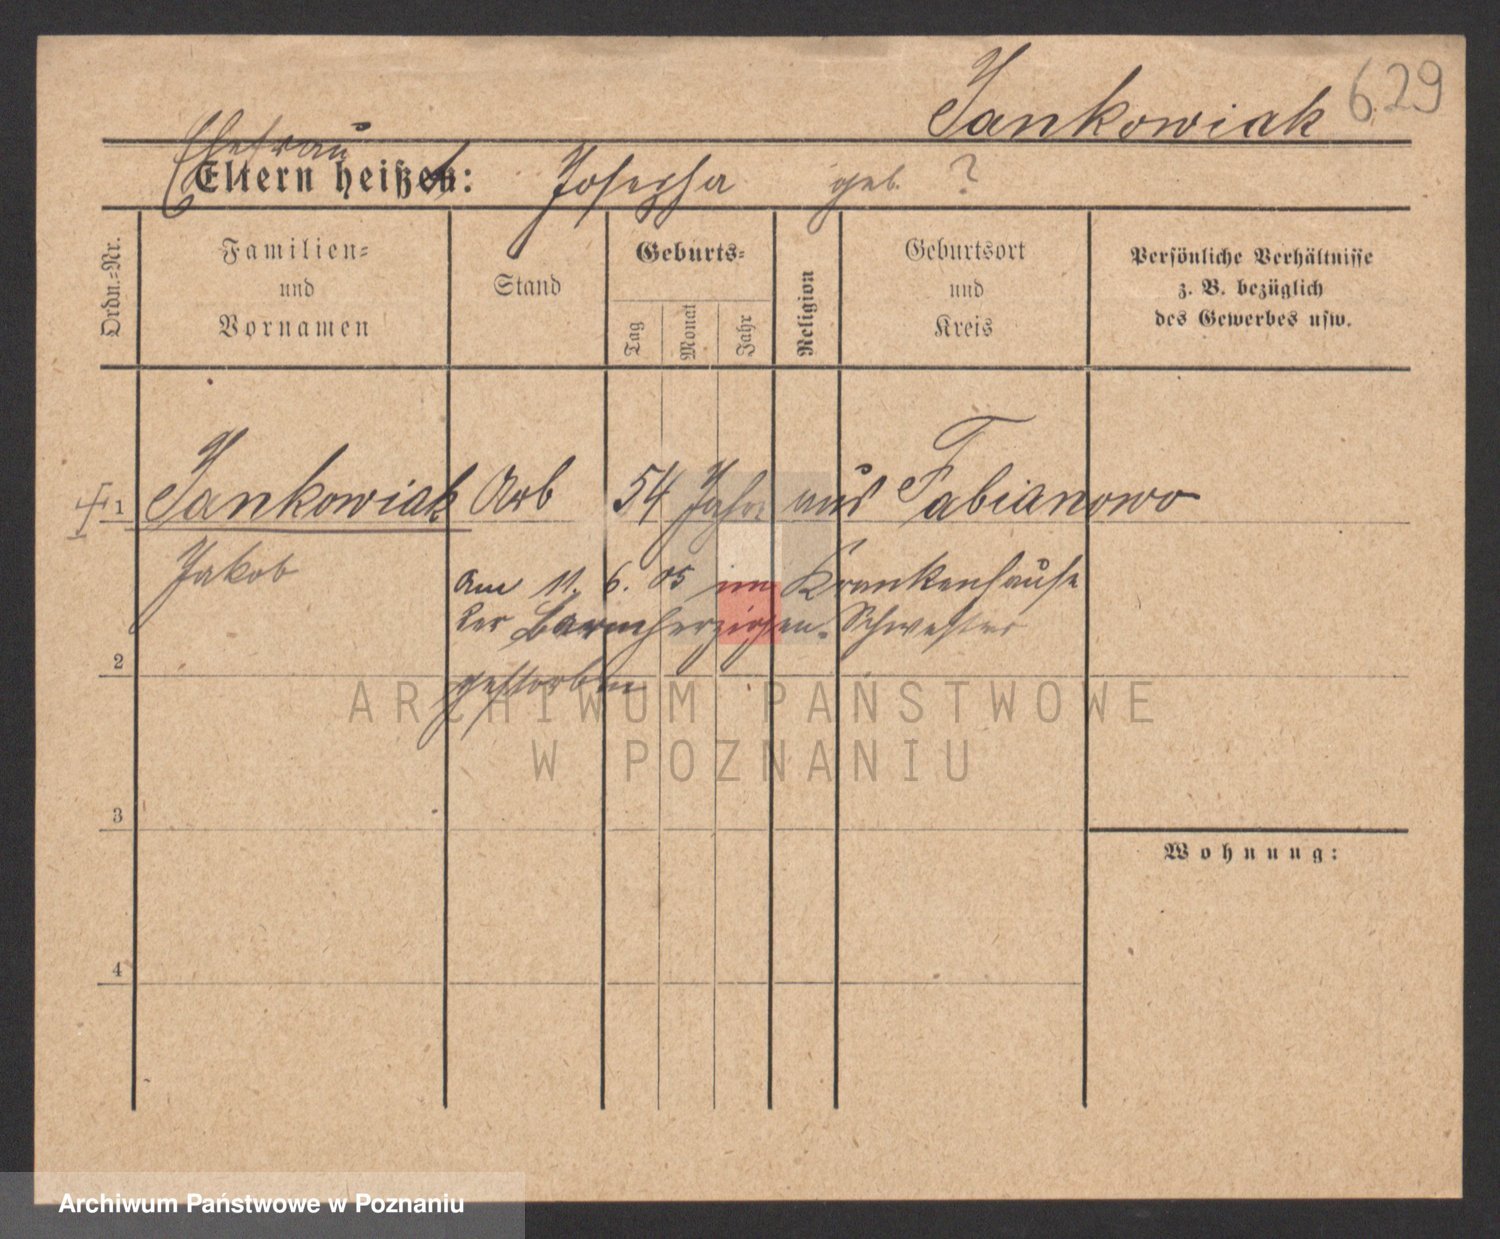 Jankowiak 629
Ehefrau
Eltern heißen: Josepha geb. ?
Ordn.-Nr.
Familien-
und
Vornamen
Stand
Geburts-
Tag
Monat
Jahr
Religion
Geburtsort
und
Kreis
Persönliche Verhältnisse
z. B. bezüglich
des Gewerbes usw.
1 Jankowiak Arb 54 Jahr aus Fabianowo
Jakob
am 11. 6. 05 im Krankenhause
der Barmherzigen Schwester
2
gestorben
ARCHIWUM PAŃSTWOWE
W POZNANIU
3
Wohnung:
4
Archiwum Państwowe w Poznaniu